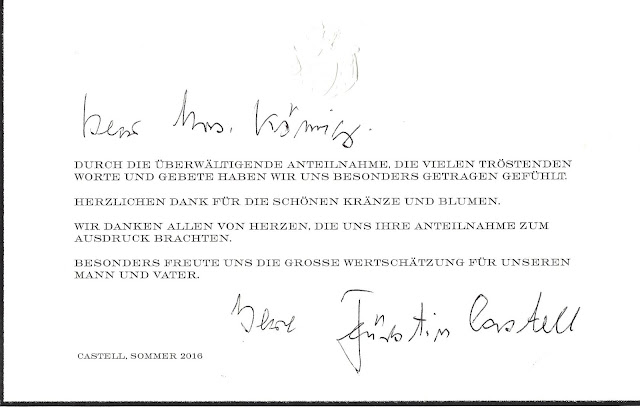 Mrs. König.
DURCH DIE ÜBERWÄLTIGENDE ANTEILNAHME, DIE VIELEN TRÖSTENDEN
WORTE UND GEBETE HABEN WIR UNS BESONDERS GETRAGEN GEFÜHLT.
HERZLICHEN DANK FÜR DIE SCHÖNEN KRÄNZE UND BLUMEN.
WIR DANKEN ALLEN VON HERZEN, DIE UNS IHRE ANTEILNAHME ZUM
AUSDRUCK BRACHTEN.
BESONDERS FREUTE UNS DIE GROSSE WERTSCHÄTZUNG FÜR UNSEREN
MANN UND VATER.
Fürstin Castell
CASTELL, SOMMER 2016